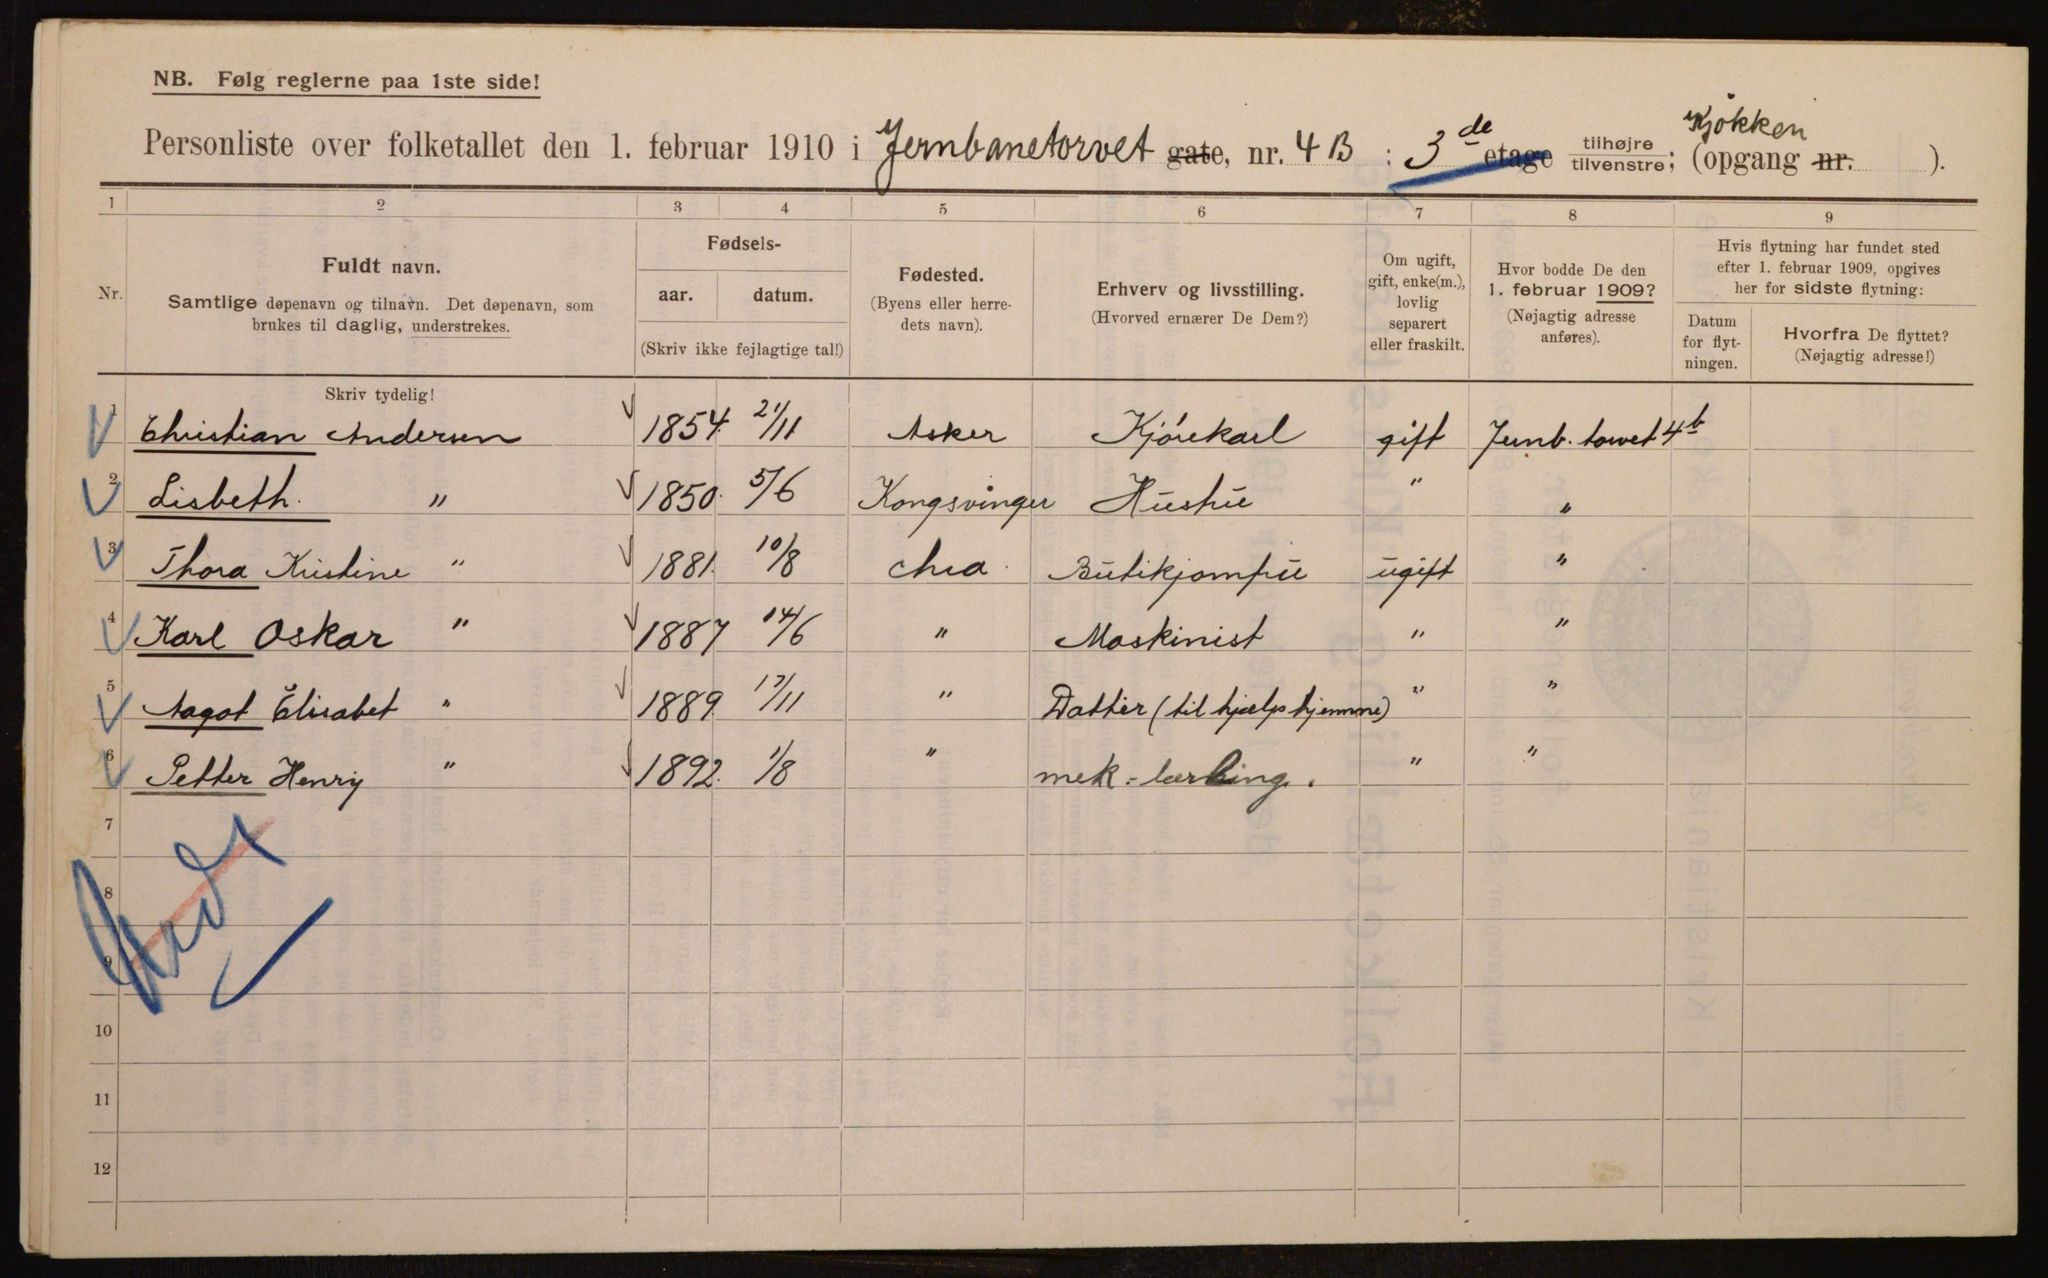 NB. Følg reglerne paa 1ste side!
Personliste over folketallet den 1. februar 1910 i Jernbanetorvet gate, nr. 4B : 3de etage tilhøjre tilvenstre; (opgang nr. Kjøkken ).
1 2 3 4 5 6 7 8 9
Nr.
Fuldt navn.
Samtlige døpenavn og tilnavn. Det døpenavn, som
brukes til daglig, understrekes.
Fødsels-
aar. datum.
(Skriv ikke fejlagtige tal!)
Fødested.
(Byens eller herre-
dets navn).
Erhverv og livsstilling.
(Hvorved ernærer De Dem?)
Om ugift,
gift, enke(m.),
lovlig
separert
eller fraskilt.
Hvor bodde De den
1. februar 1909?
(Nøjagtig adresse
anføres).
Hvis flytning har fundet sted
efter 1. februar 1909, opgives
her for sidste flytning:
Datum
for flyt-
ningen.
Hvorfra De flyttet?
(Nøjagtig adresse!)
Skriv tydelig!
1 Christian Andersen 1854 21/11 Asker Kjørekarl gift Jernb. torvet 4b
2 Lisbeth. " 1850. 5/6 Kongsvinger Hustru " "
3 Thora Kristine " 1881. 10/8 Chra. Butikjomfru ugift "
4 Karl Oskar " 1887 14/6 " Maskinist " "
5 Aagot Elisabet " 1889. 17/11 " Datter (til hjælp hjemme) " "
6 Petter Henry " 1892. 1/8 " mek.-lærling. " "
7
8
9
10
11
12